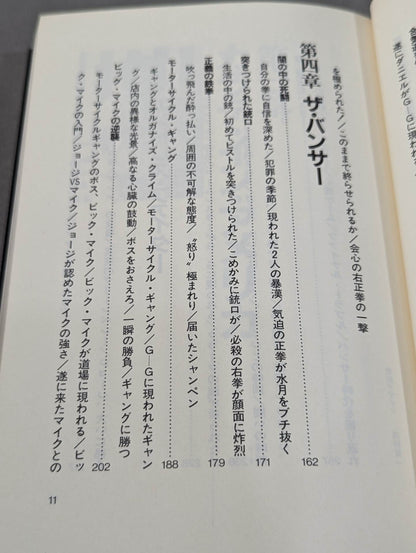 を極められた!/このままで終らせられるか/会心の右正拳の一撃
第四章 ザ・バンサー
闇の中の死闘
自分の拳に自信を深めた/犯罪の季節/現われた2人の暴漢/気迫の正拳が水月をブチ抜く
162
突きつけられた銃口
生活の中の銃/初めてピストルを突きつけられた/こめかみに銃口が/必殺の右拳が顔面に炸烈
171
正義の鉄拳
吹っ飛んだ酔っ払い/周囲の不可解な態度/〝怒り〟極まれり/届いたシャンペン
179
モーターサイクル・ギャング
ギャングとオルガナイズ・クライム/モーターサイクル・ギャング/G—Gに現われたギャン
グ/店内の異様な光景/高なる心臓の鼓動/ボスをおさえろ/一瞬の勝負/ギャングに勝つ
188
ビッグ・マイクの逆襲
モーターサイクルギャングのボス、ビック・マイク/ビック・マイクが道場に現われる/ビッ
ク・マイクの入門/ジョージVSマイク/ジョージが認めたマイクの強さ/遂に来たマイクとの
202
11
遂にダニエルがG—Gに現われた